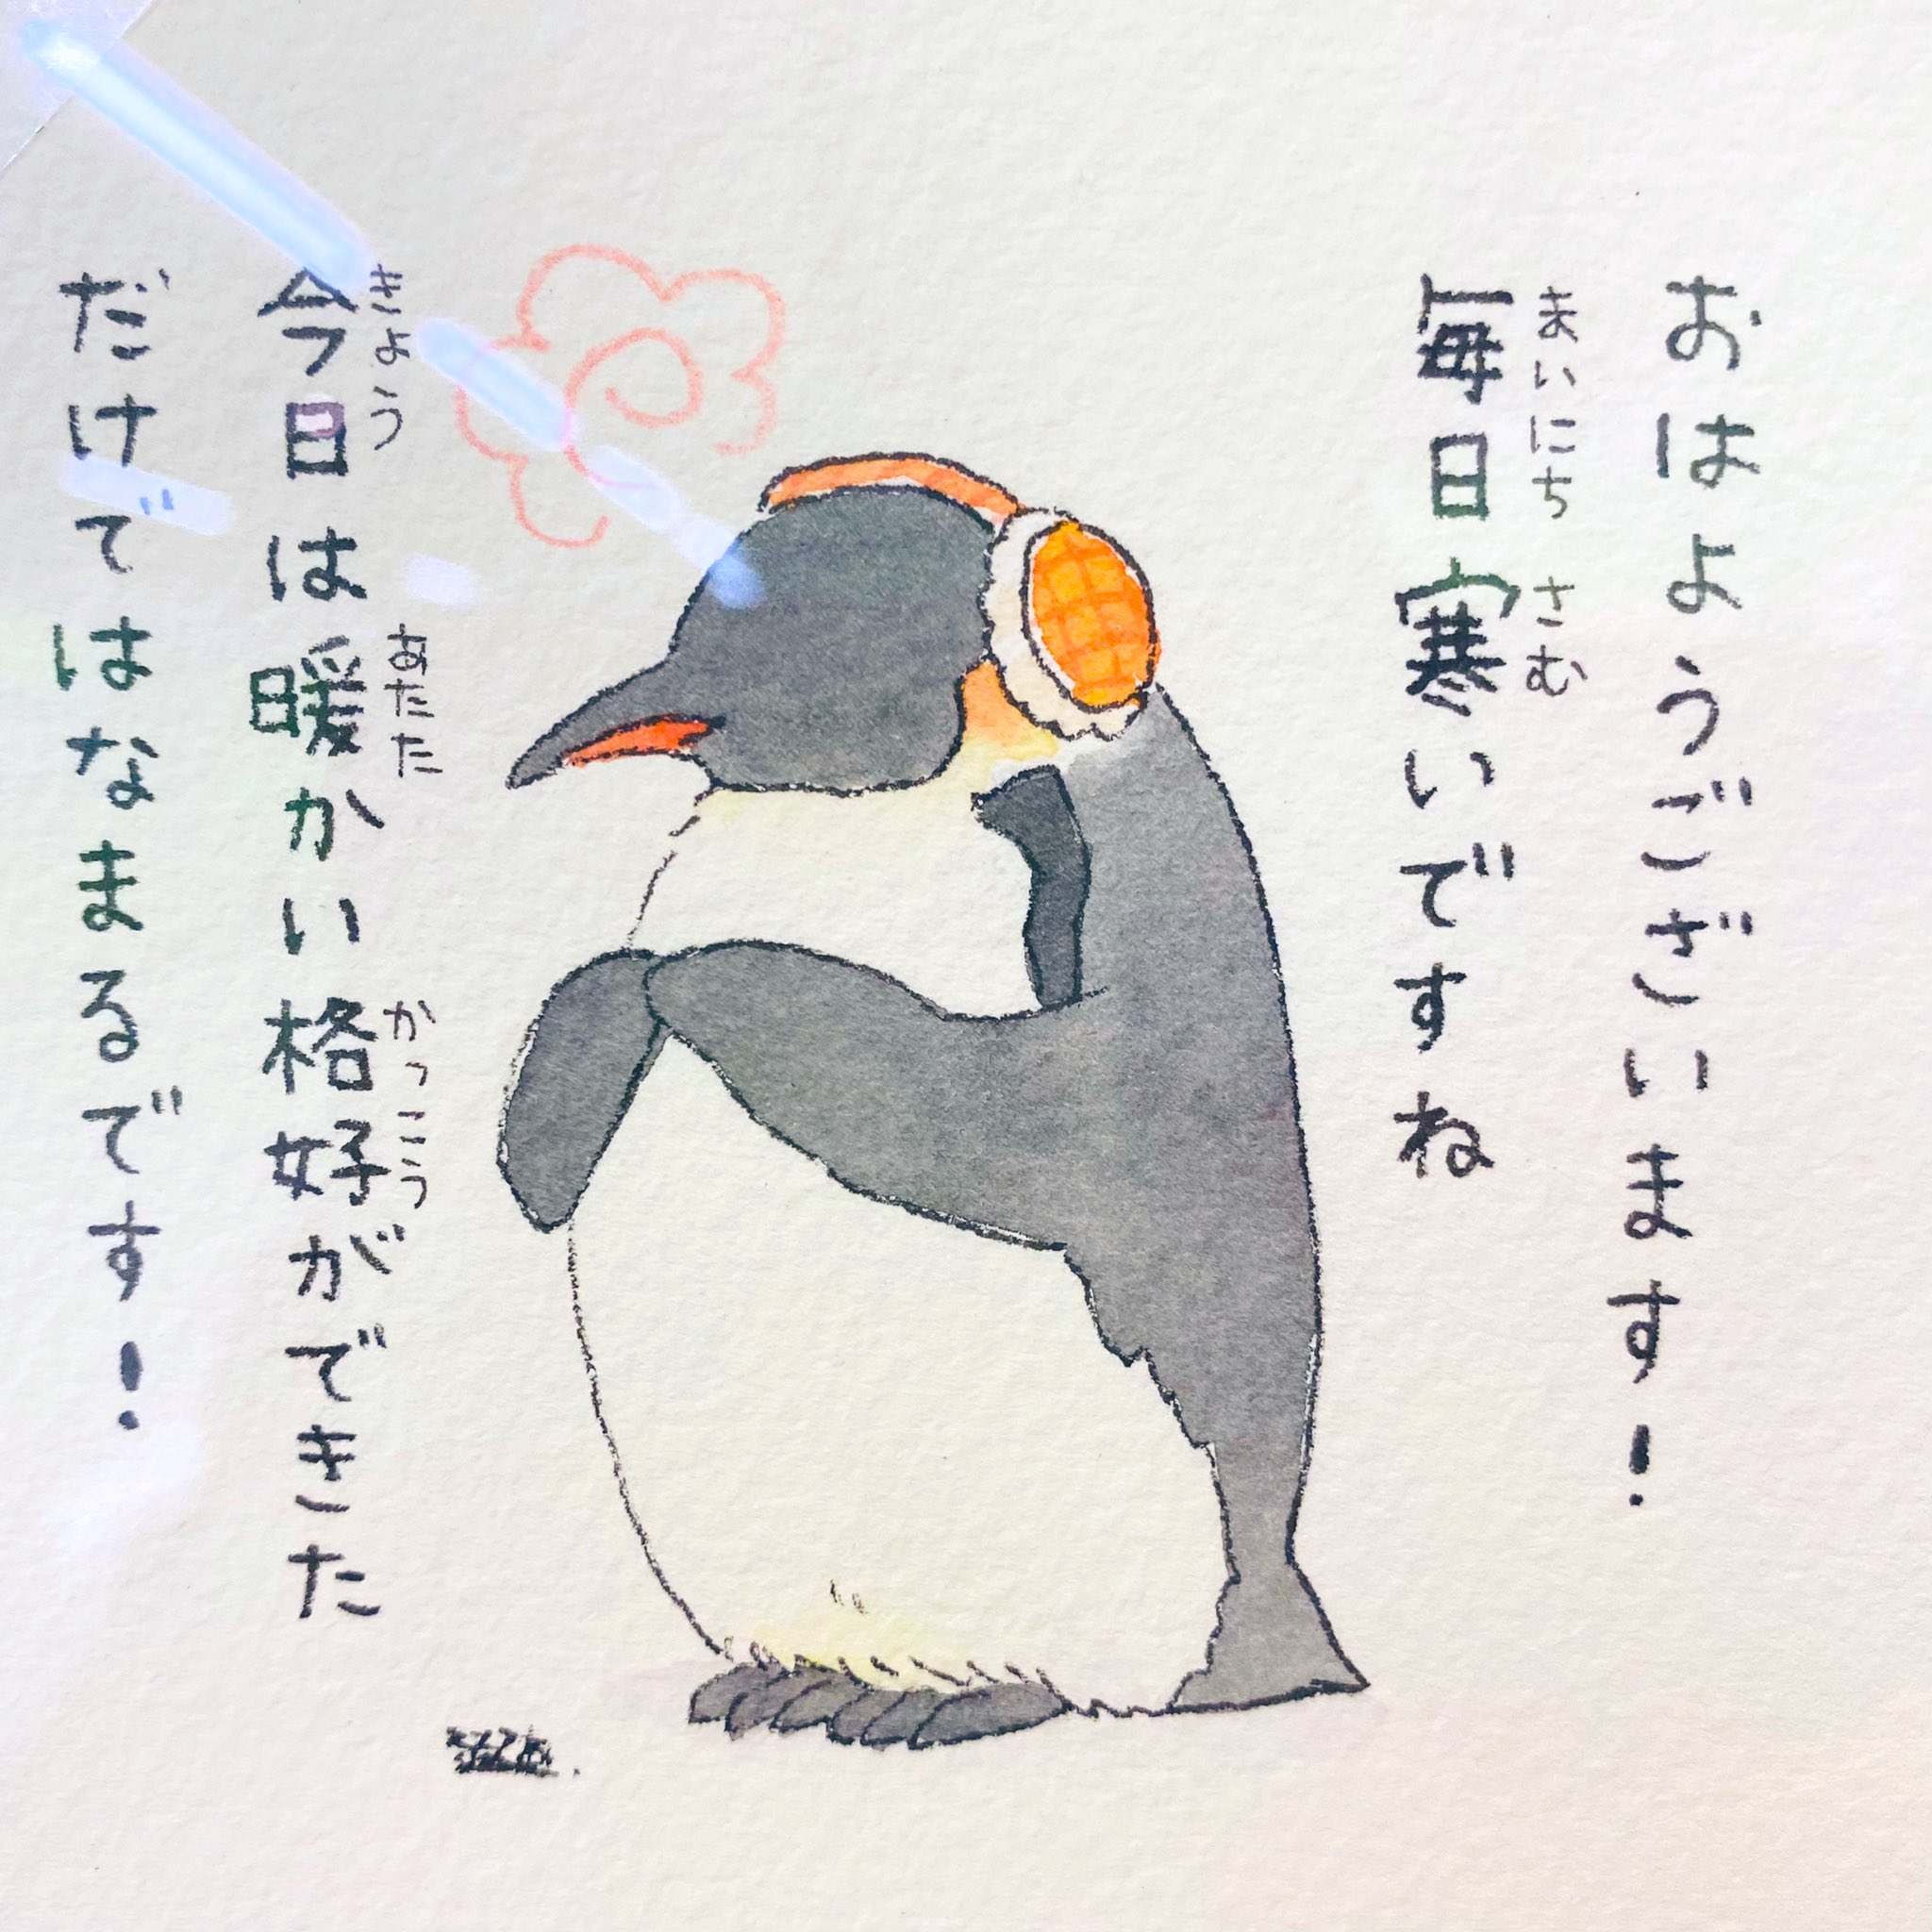 おはようございます！
毎日寒いですね
まいにち さむ
今日は暖かい格好ができた
きょう あたた かっこう
だけではなまるです！